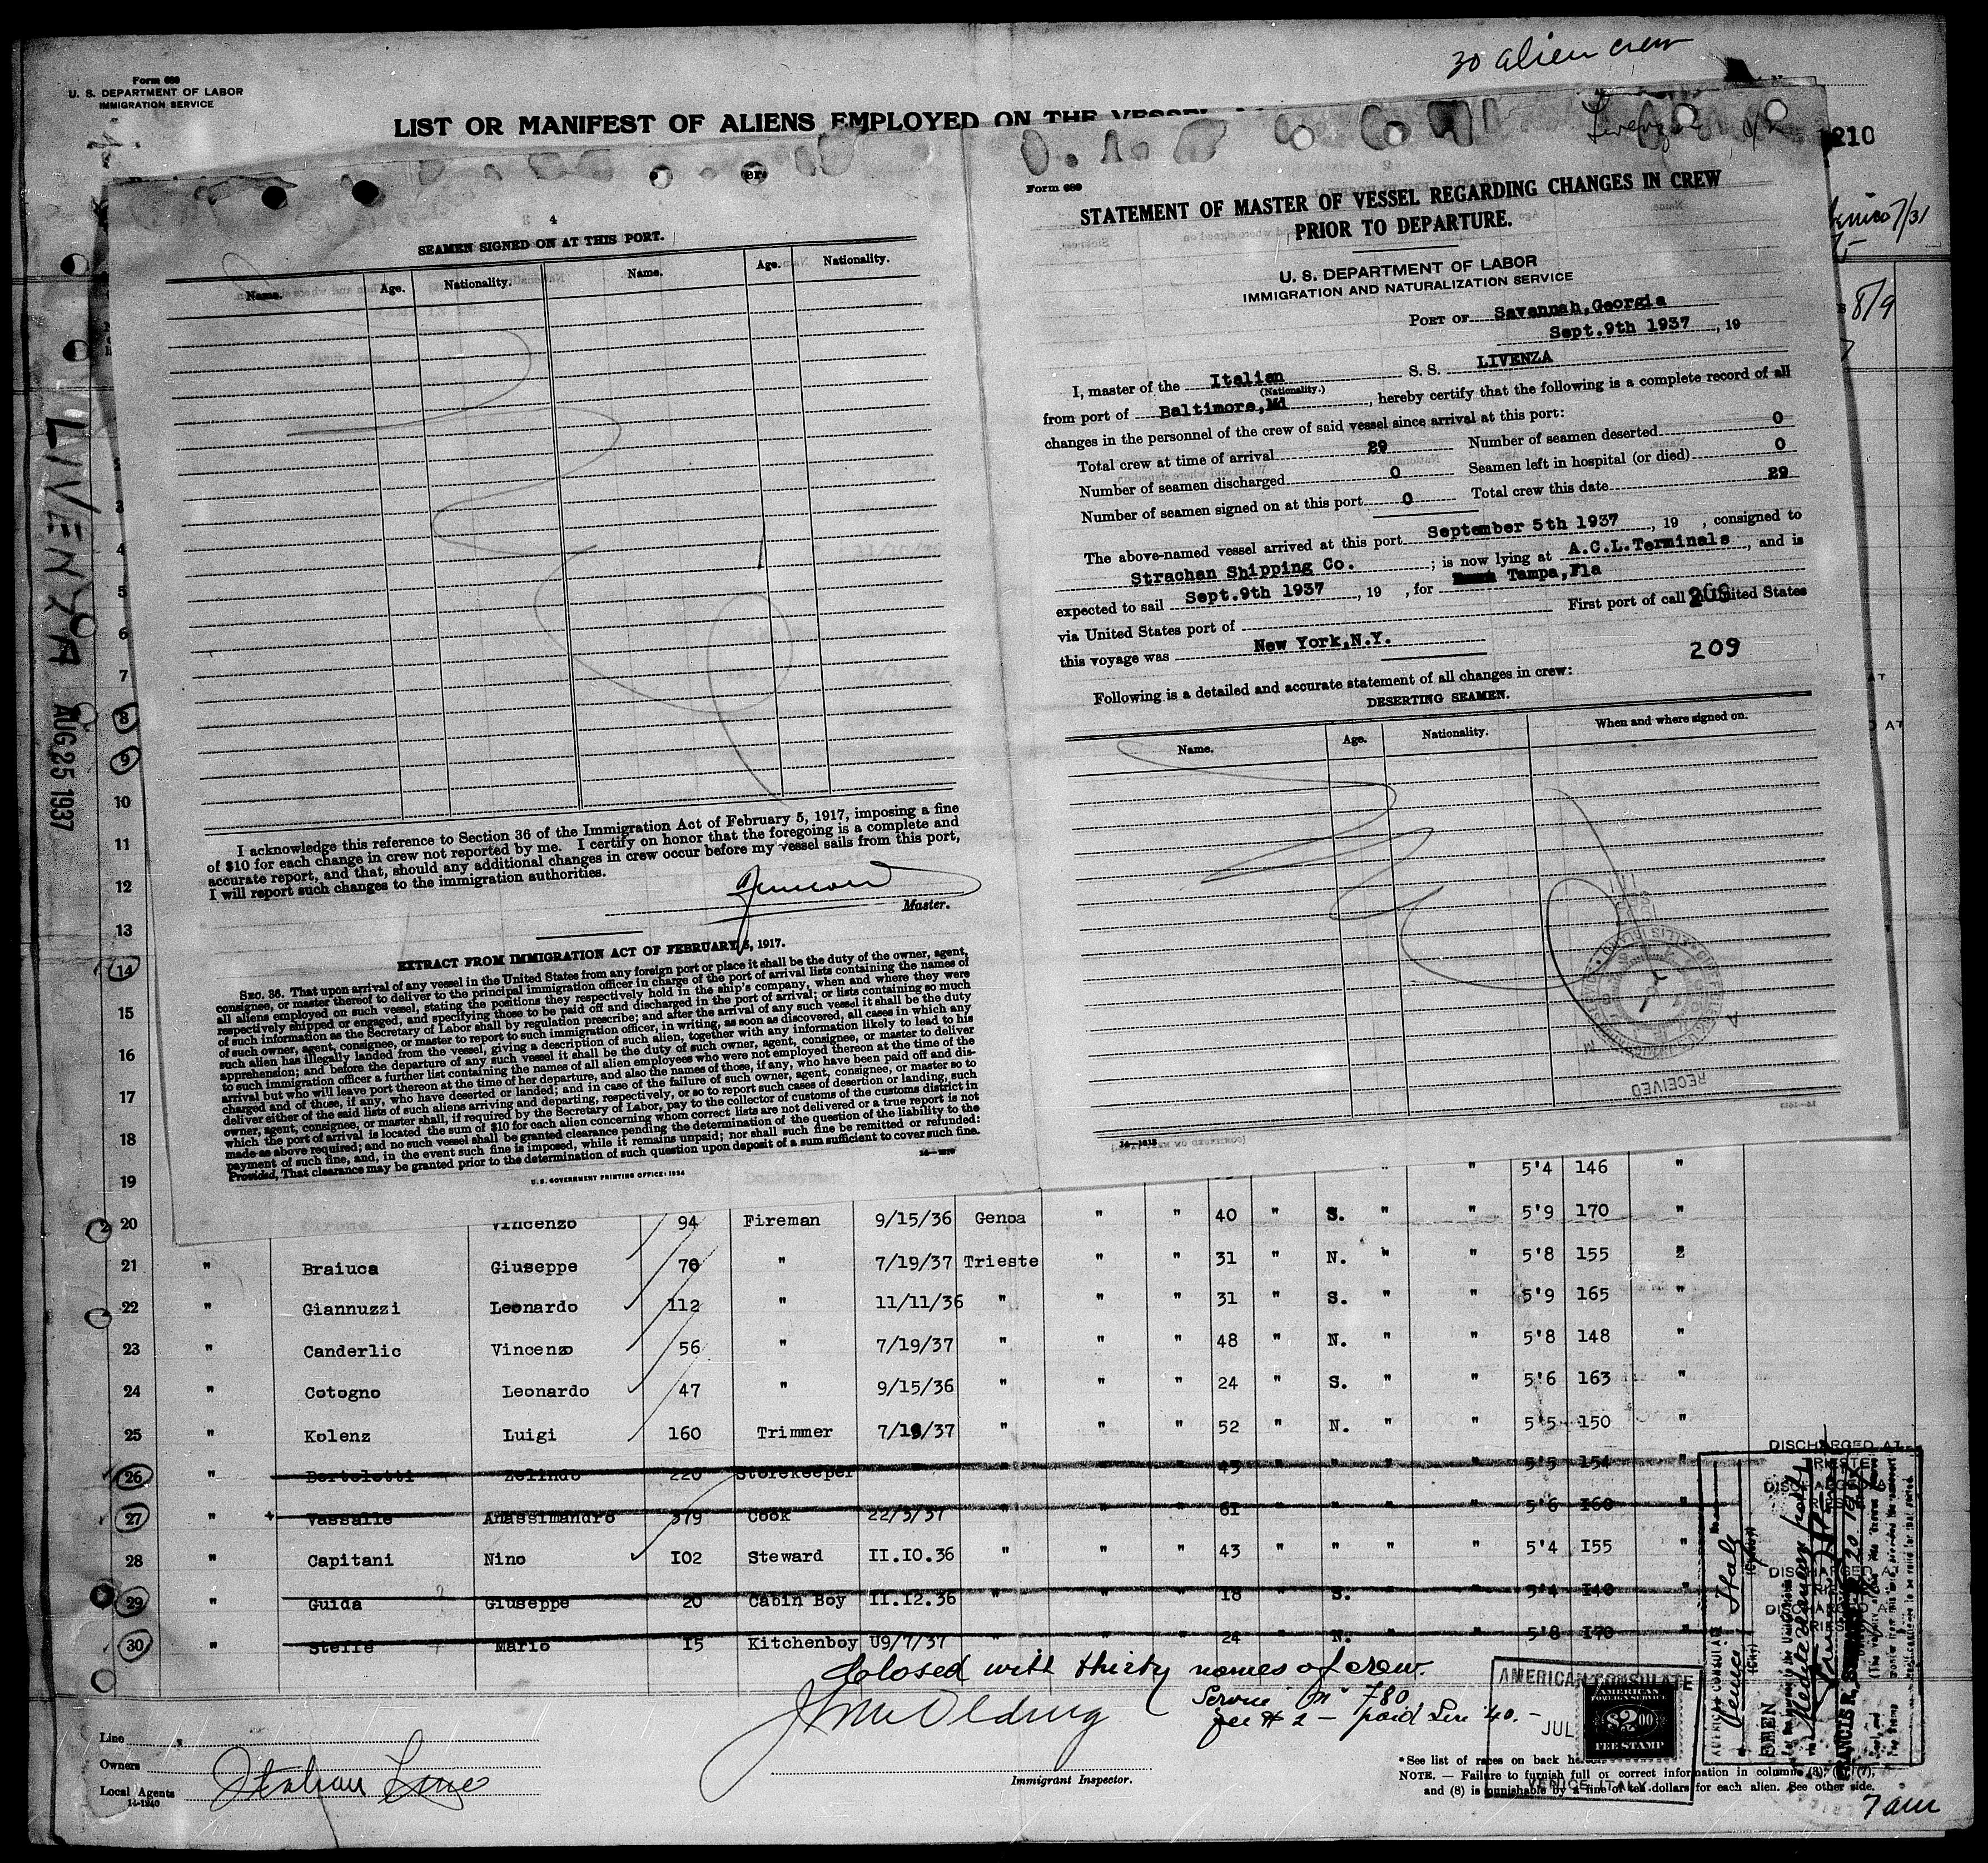 30 alien crew
Form 689
U. S. DEPARTMENT OF LABOR
IMMIGRATION SERVICE
LIST OR MANIFEST OF ALIENS EMPLOYED ON THE VESSEL
210
7/31
8/9
LIVENZA AUG 25 1937
4
SEAMEN SIGNED ON AT THIS PORT.
Name. Age. Nationality. Name. Age. Nationality.
I acknowledge this reference to Section 36 of the Immigration Act of February 5, 1917, imposing a fine
of $10 for each change in crew not reported by me. I certify on honor that the foregoing is a complete and
accurate report, and that, should any additional changes in crew occur before my vessel sails from this port,
I will report such changes to the immigration authorities.
Master.
EXTRACT FROM IMMIGRATION ACT OF FEBRUARY 5, 1917.
SEC. 36. That upon arrival of any vessel in the United States from any foreign port or place it shall be the duty of the owner, agent,
consignee, or master thereof to deliver to the principal immigration officer in charge of the port of arrival lists containing the names of
all aliens employed on such vessel, stating the positions they respectively hold in the ship's company, when and where they were
respectively shipped or engaged, and specifying those to be paid off and discharged in the port of arrival; or lists containing so much
of such information as the Secretary of Labor shall by regulation prescribe; and after the arrival of any such vessel it shall be the duty
of such owner, agent, consignee, or master to report to such immigration officer, in writing, as soon as discovered, all cases in which any
such alien has illegally landed from the vessel, giving a description of such alien, together with any information likely to lead to his
apprehension; and before the departure of any such vessel it shall be the duty of such owner, agent, consignee, or master to deliver
to such immigration officer a further list containing the names of all alien employees who were not employed thereon at the time of the
arrival but who will leave port thereon at the time of her departure, and also the names of those, if any, who have been paid off and dis-
charged and of those, if any, who have deserted or landed; and in case of the failure of such owner, agent, consignee, or master so to
deliver either of the said lists of such aliens arriving and departing, respectively, or so to report such cases of desertion or landing, such
owner, agent, consignee, or master shall, if required by the Secretary of Labor, pay to the collector of customs of the customs district in
which the port of arrival is located the sum of $10 for each alien concerning whom correct lists are not delivered or a true report is not
made as above required; and no such vessel shall be granted clearance pending the determination of the question of the liability to the
payment of such fine, and, in the event such fine is imposed, while it remains unpaid; nor shall such fine be remitted or refunded:
Provided, That clearance may be granted prior to the determination of such question upon deposit of a sum sufficient to cover such fine.
U. S. GOVERNMENT PRINTING OFFICE: 1934
Form 689
STATEMENT OF MASTER OF VESSEL REGARDING CHANGES IN CREW
PRIOR TO DEPARTURE.
U. S. DEPARTMENT OF LABOR
IMMIGRATION AND NATURALIZATION SERVICE
PORT OF Savannah,Georgia
Sept.9th 1937, 19
I, master of the Italian S. S. LIVENZA
(Nationality.)
from port of Baltimore,Md, hereby certify that the following is a complete record of all
changes in the personnel of the crew of said vessel since arrival at this port:
Total crew at time of arrival 29 Number of seamen deserted 0
Number of seamen discharged 0 Seamen left in hospital (or died) 0
Number of seamen signed on at this port 0 Total crew this date 29
The above-named vessel arrived at this port September 5th 1937, 19 , consigned to
Strachan Shipping Co. ; is now lying at A.C.L.Terminals, and is
expected to sail Sept.9th 1937, 19 , for Tampa,Fla
via United States port of First port of call in United States
this voyage was New York,N.Y.
209
Following is a detailed and accurate statement of all changes in crew:
DESERTING SEAMEN.
Name. Age. Nationality. When and where signed on.
RECEIVED
3
4
5
6
7
8
9
10
11
12
13
14
15
16
17
18
19 " " 5'4 146 "
20 Vincenzo 94 Fireman 9/15/36 Genoa " " 40 " S. " " 5'9 170 "
21 " Braiuca Giuseppe 70 " 7/19/37 Trieste " " 31 " N. " " 5'8 155 "
22 " Giannuzzi Leonardo 112 " 11/11/36 " " " 31 " S. " " 5'9 165 "
23 " Canderlic Vincenzo 56 " 7/19/37 " " " 48 " N. " " 5'8 148 "
24 " Cotogno Leonardo 47 " 9/15/36 " " " 24 " S. " " 5'6 163 "
25 " Kolenz Luigi 160 Trimmer 7/19/37 " " " 52 " N. " " 5'5 150 "
26 " Bortoletti Zelindo 220 Storekeeper " " " " 43 " " " " 5'5 154 "
27 " Vassalle Anassimandro 379 Cook 22/3/37 " " " 61 " " " " 5'6 I60 "
28 " Capitani Nino I02 Steward II.I0.36 " " " 43 " " " " 5'4 I55 "
29 " Guida Giuseppe 20 Cabin Boy II.I2.36 " " " 18 " S. " " 5'4 I40 "
30 " Steffe Mario I5 Kitchenboy 09/7/37 " " " 24 " N. " " 5'8 I70 "
Closed with thirty names of crew.
Service No 780
fee $ 2 — paid Lire 40.-
AMERICAN CONSULATE
JUL
AMERICAN
FOREIGN SERVICE
$2.00
FEE STAMP
VENICE, ITALY.
DISCHARGED AT
TRIESTE
AMERICAN CONSULATE
Venice Italy
SEEN
Line
Owners Italian Line
Local Agents
14-1240
Immigrant Inspector.
*See list of races on back hereof.
NOTE. — Failure to furnish full or correct information in columns (3), (6), (7),
and (8) is punishable by a fine of ten dollars for each alien. See other side.
7 am